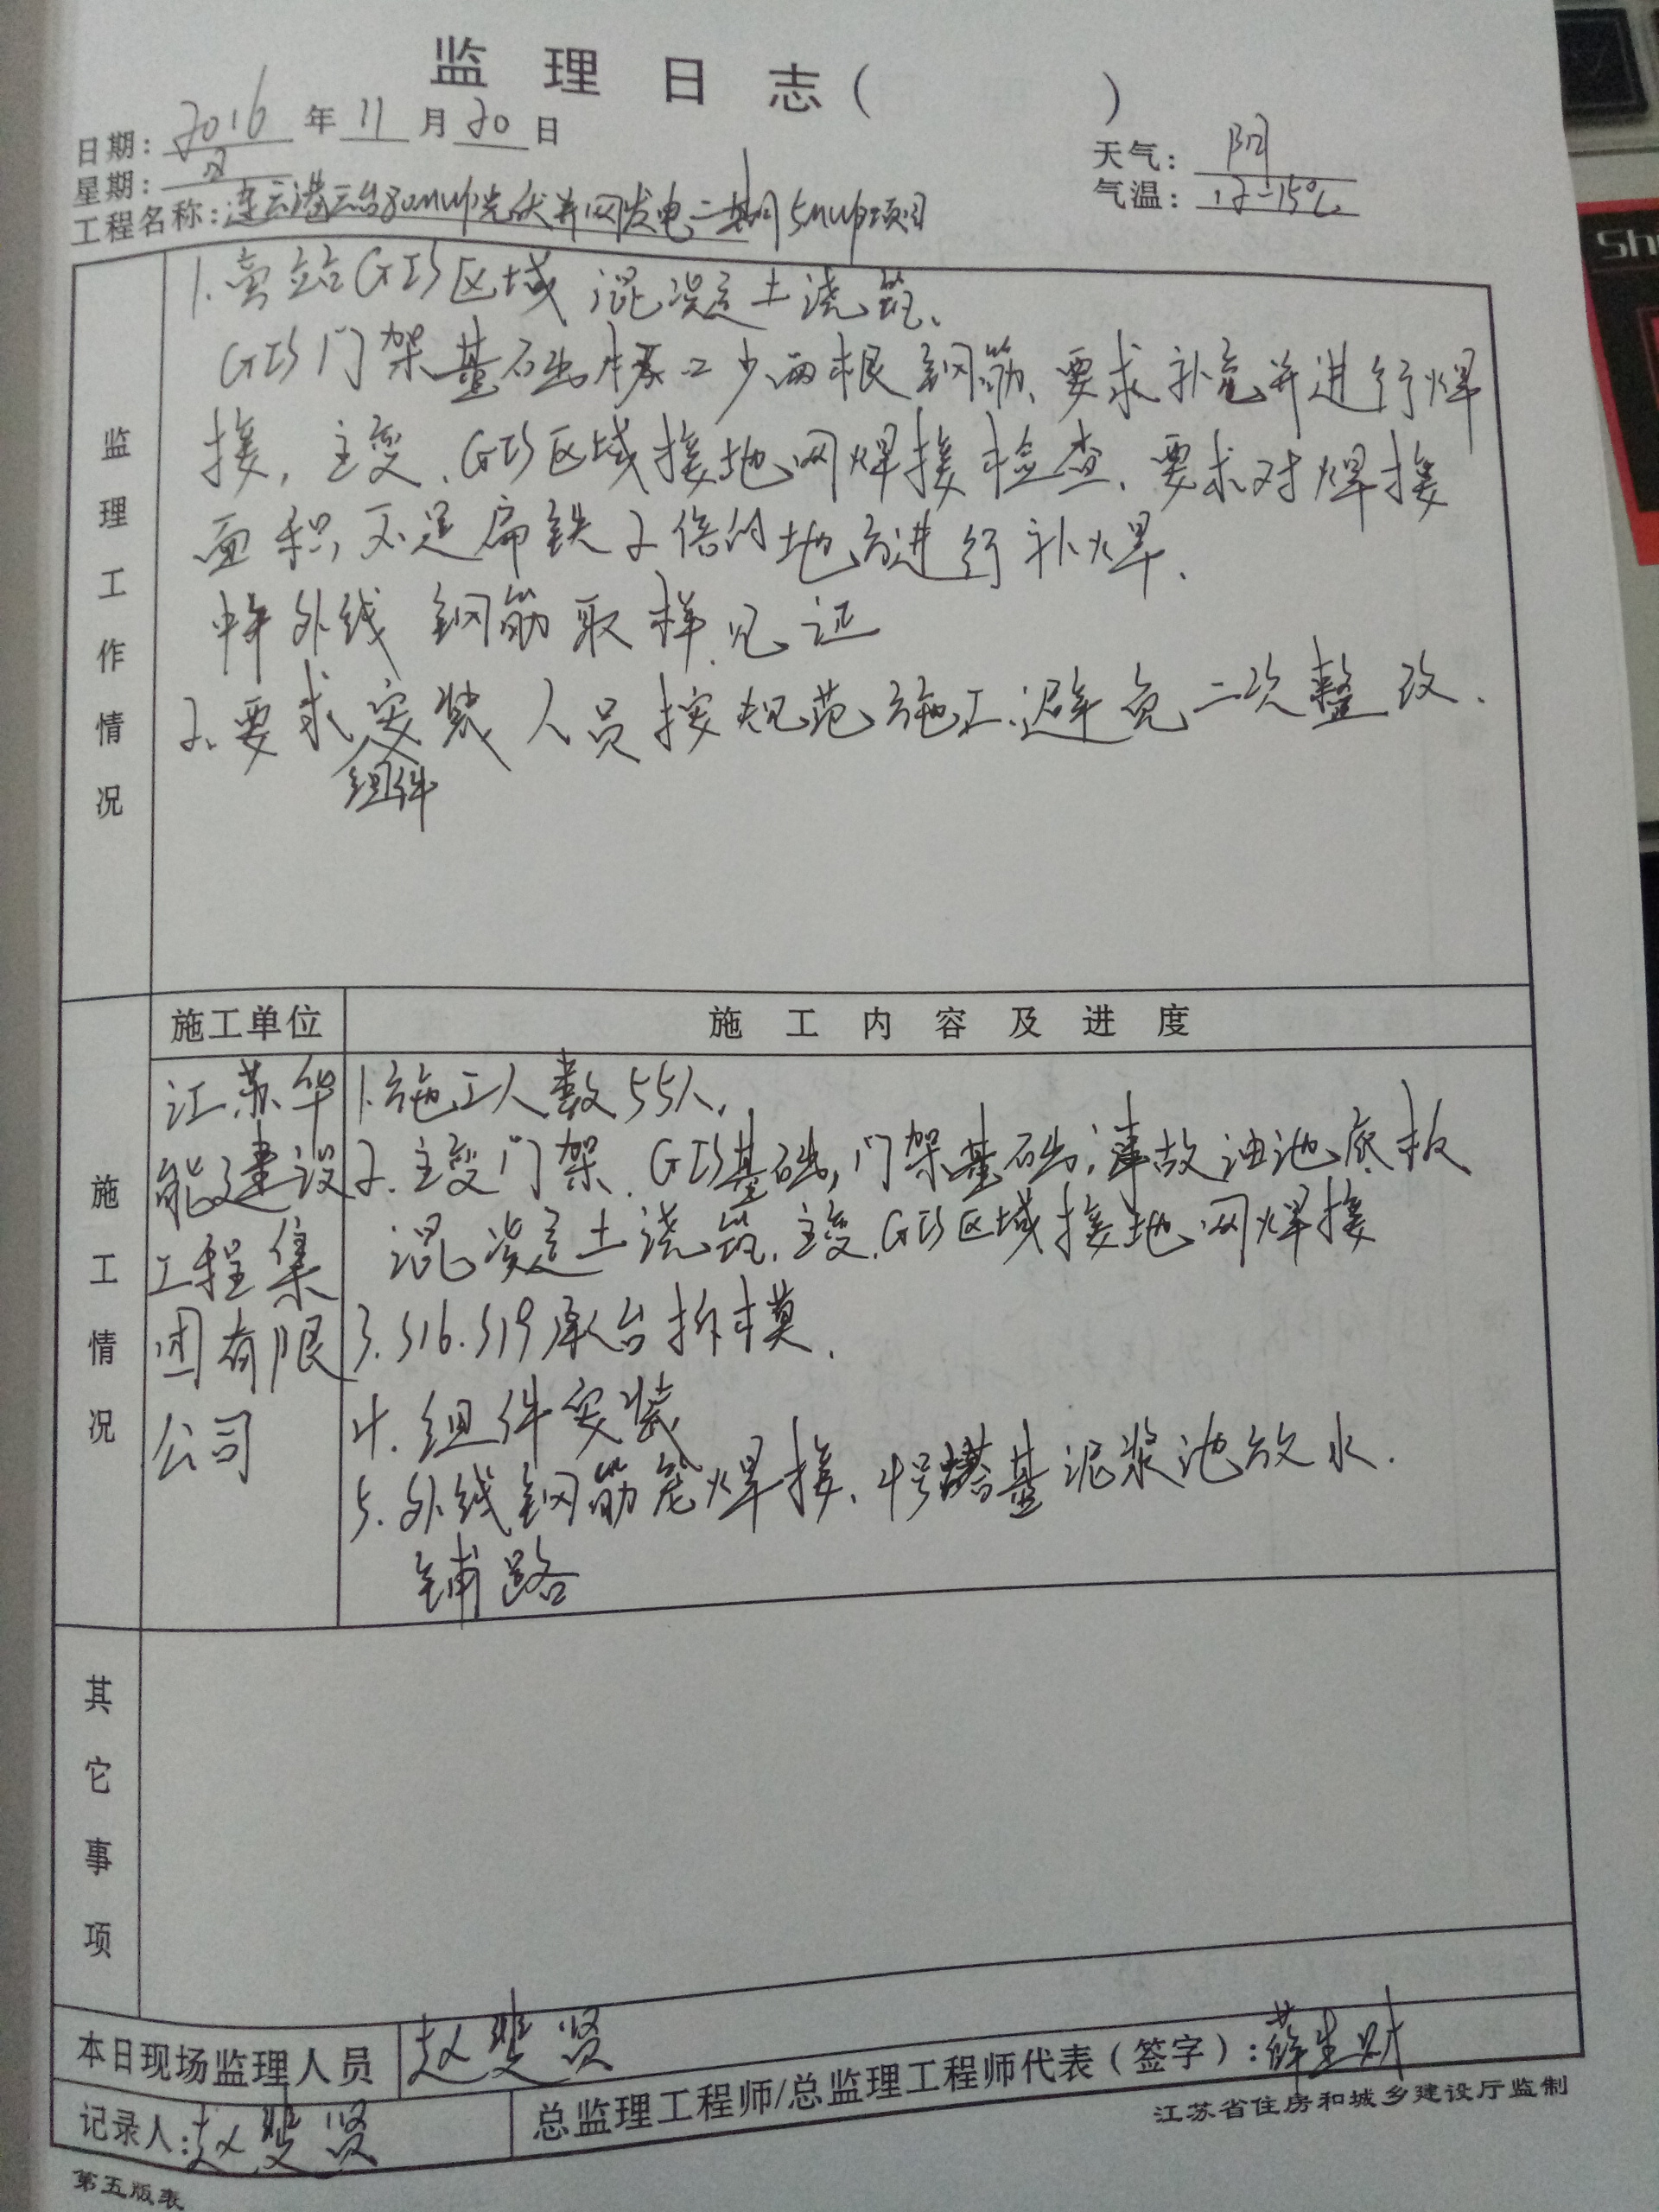 监理日志(　　)
日期:2016年11月20日
天气:阴
星期:日
气温:12-15℃
工程名称:连云港云台30MWp光伏并网发电二期5MWp项目
监理工作情况
1.旁站GIS区域混凝土浇筑、
GIS门架基础 少两根钢筋、要求补充并进行焊
接,主变、GIS区域接地网焊接检查、要求对焊接
面积不足扁铁2倍的地方进行补焊、
外线钢筋取样见证
2、要求安装人员按规范施工、避免二次整改.
组件
施工单位
施工内容及进度
施工情况
江苏华
能建设
工程集
团有限
公司
1.施工人数55人.
2.主变门架、GIS基础,门架基础;事故油池底板
混凝土浇筑,主变、GIS区域接地网焊接
3.S16.S19承台拆模.
4.组件安装
5.外线钢筋笼焊接、4号塔基泥浆池放水.
铺路
其它事项
本日现场监理人员
赵斐贤
记录人:赵斐贤
总监理工程师/总监理工程师代表(签字):薛
江苏省住房和城乡建设厅监制
第五版表
Sh